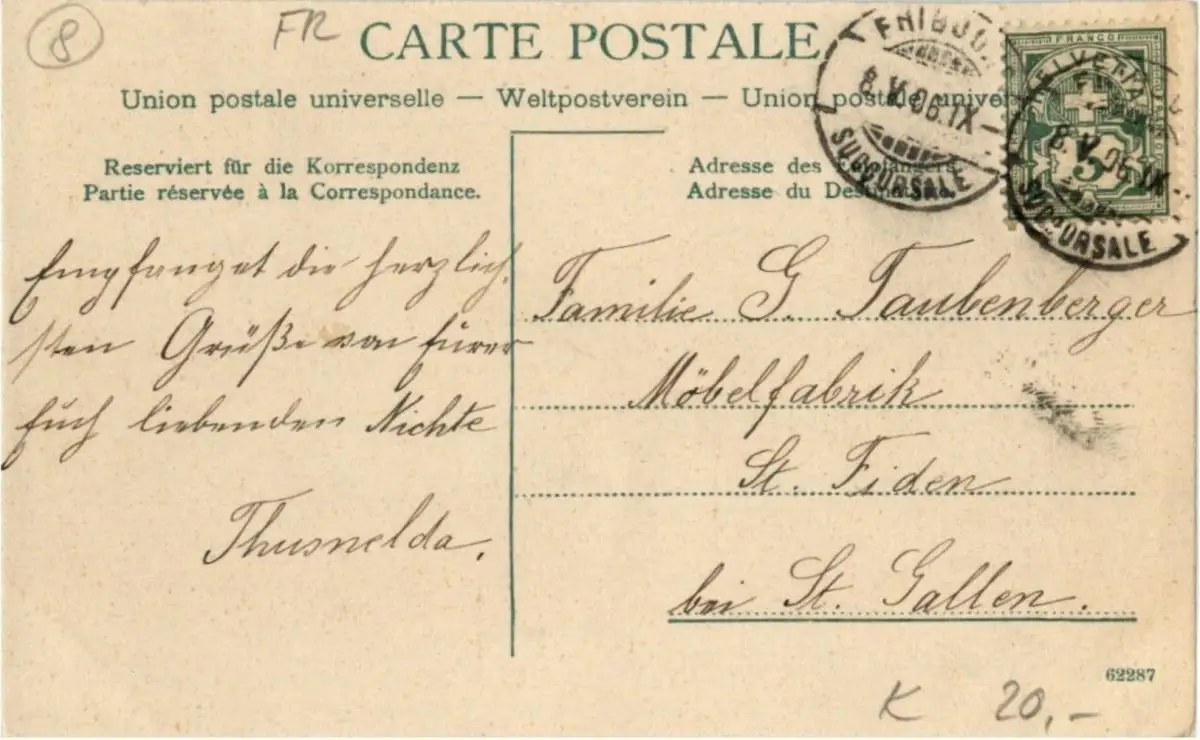 8
FR
CARTE POSTALE
Union postale universelle — Weltpostverein — Union postale univer
Reserviert für die Korrespondenz
Partie réservée à la Correspondance.
Adresse des
Adresse du
FRIBOU
8.V.06.IX–
SUCCURSALE
FRANCO
HELVETIA
5
8.V.06.IX–
SUCCURSALE
Empfanget die herzlich-
sten Grüße von Eurer
Euch liebenden Nichte
Thusnelda.
Familie G. Taubenberger
Möbelfabrik
St. Fiden
bei St. Gallen.
62287
K 20,–